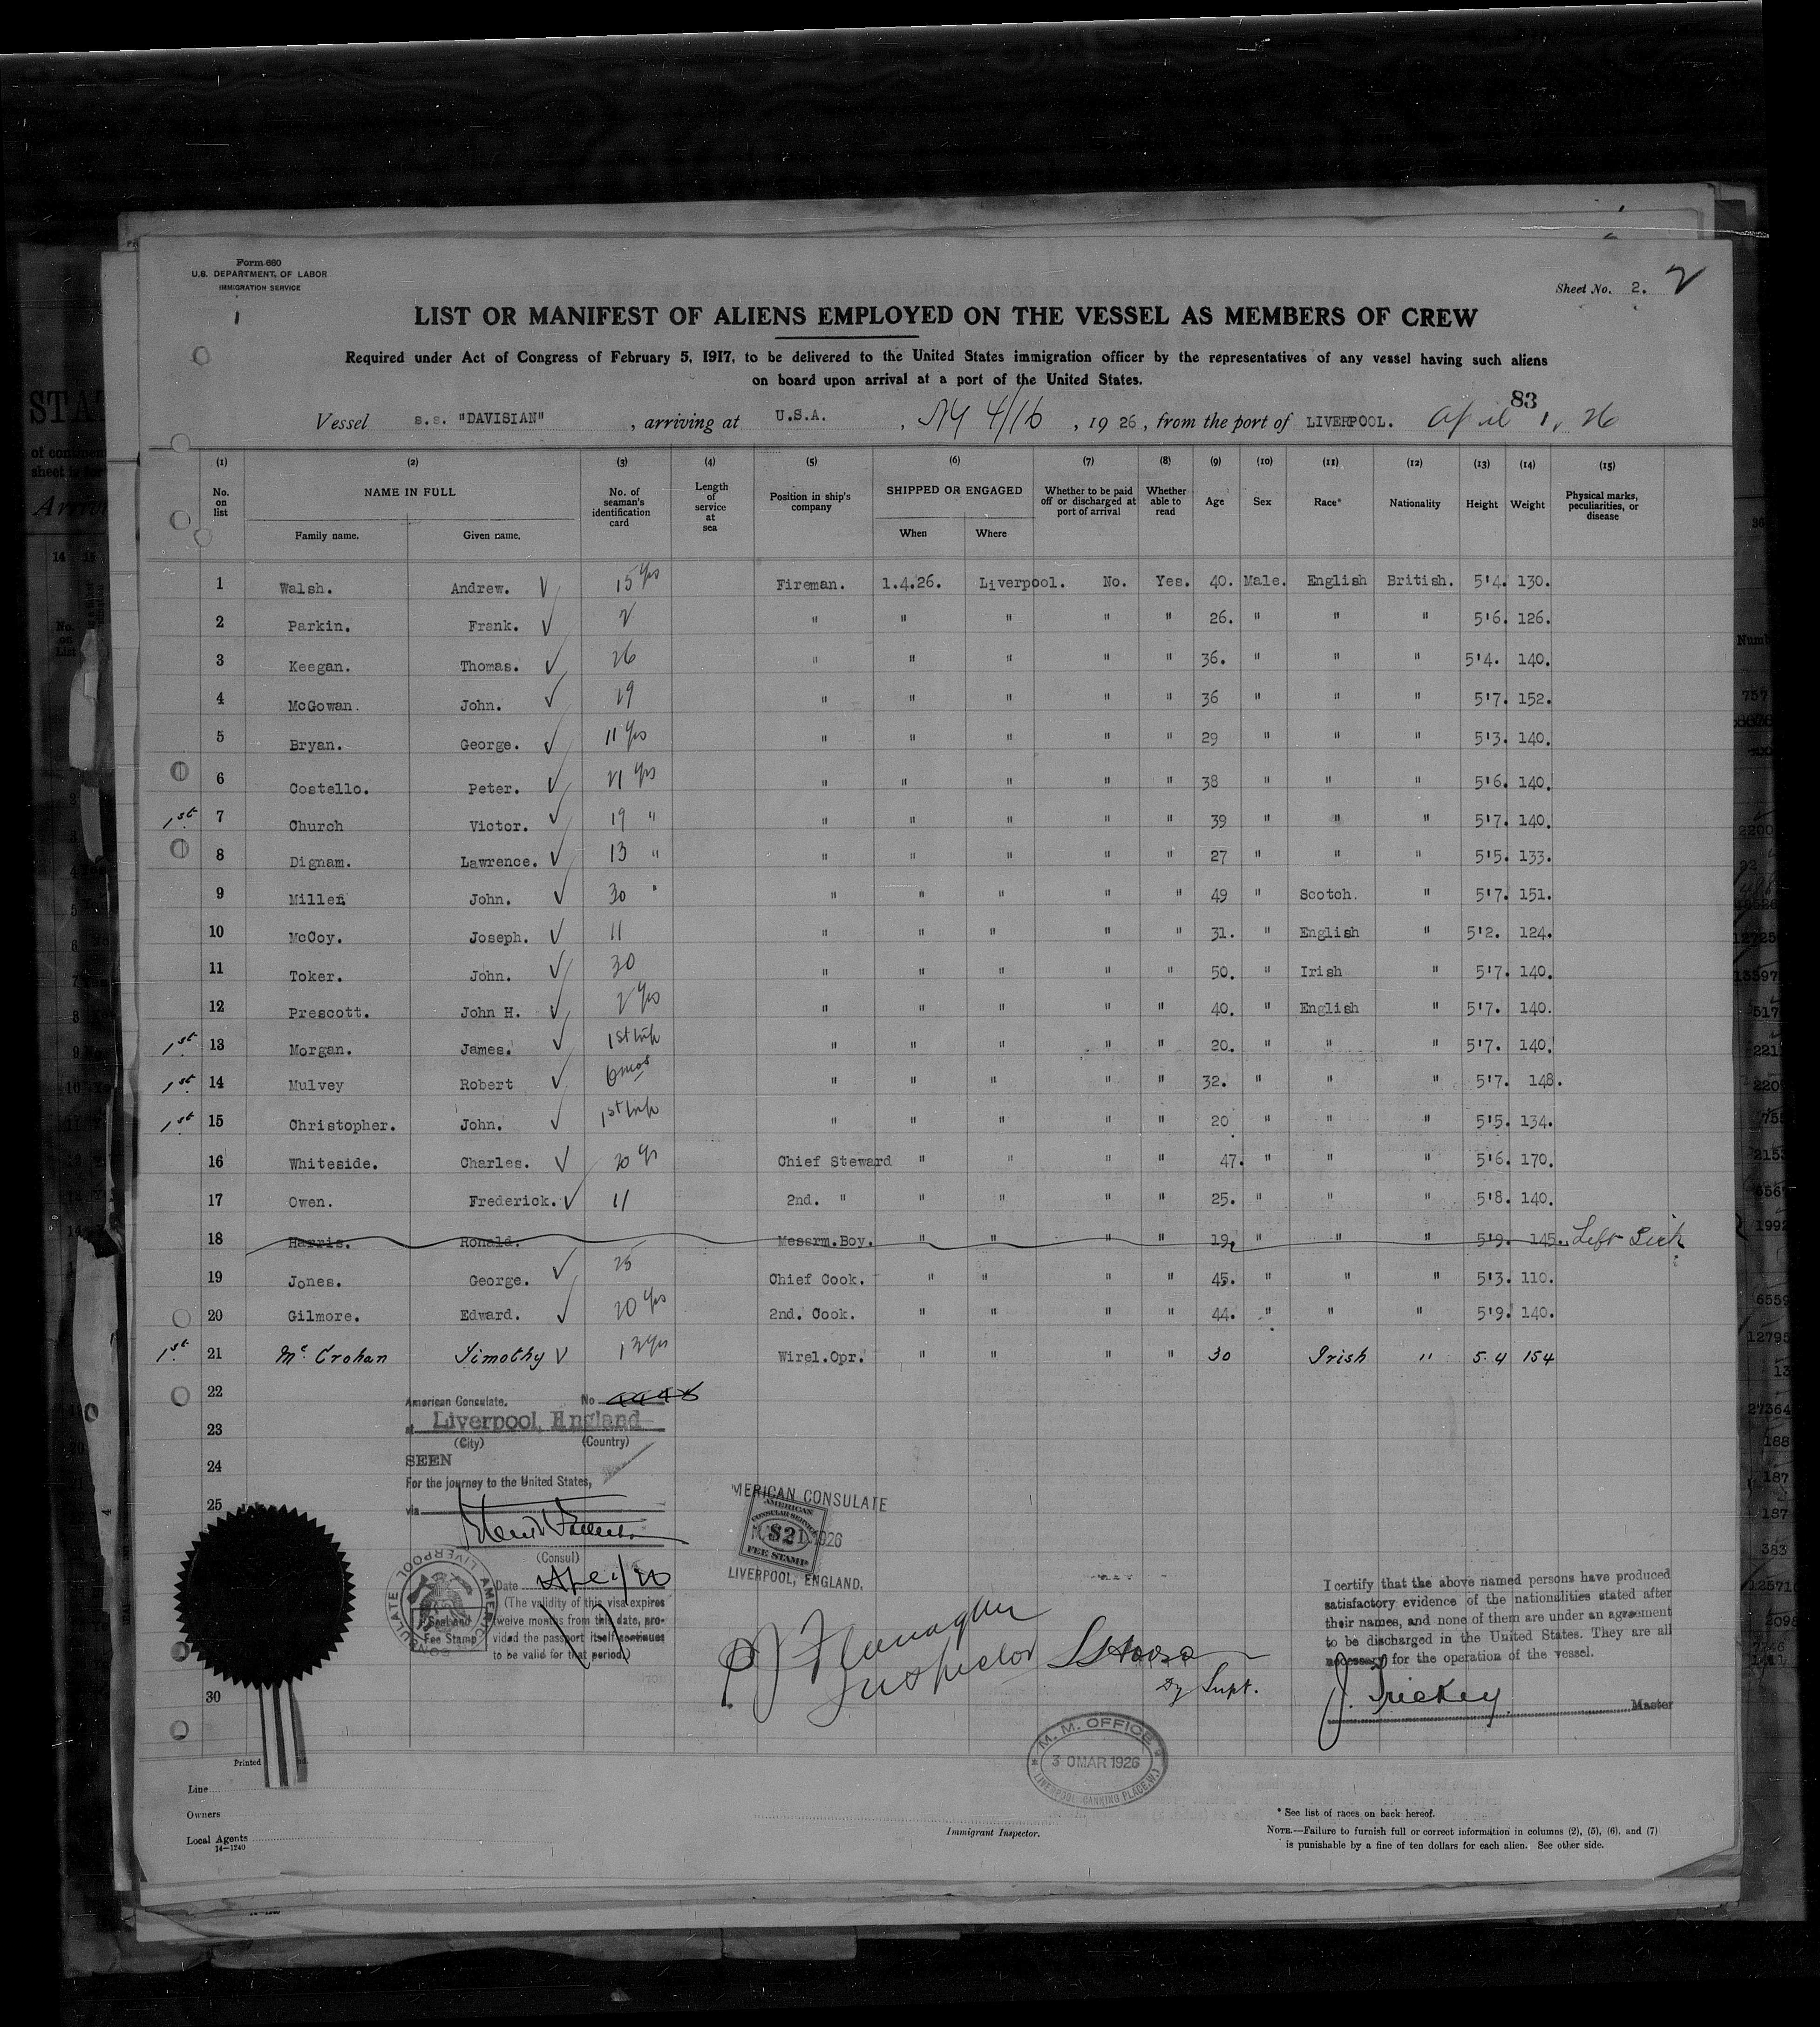 Form 680
U.S. DEPARTMENT OF LABOR
IMMIGRATION SERVICE
Sheet No. 2. 2
LIST OR MANIFEST OF ALIENS EMPLOYED ON THE VESSEL AS MEMBERS OF CREW
Required under Act of Congress of February 5, 1917, to be delivered to the United States immigration officer by the representatives of any vessel having such aliens
on board upon arrival at a port of the United States.
83
Vessel s.s. "DAVISIAN" , arriving at U.S.A. , NY 4/16 , 1926, from the port of LIVERPOOL. April 1, 26
(1) (2) (3) (4) (5) (6) (7) (8) (9) (10) (11) (12) (13) (14) (15)
No. on list NAME IN FULL Family name. Given name. No. of seaman's identification card Length of service at sea Position in ship's company SHIPPED OR ENGAGED When Where Whether to be paid off or discharged at port of arrival Whether able to read Age Sex Race* Nationality Height Weight Physical marks, peculiarities, or disease
1 Walsh. Andrew. √ 15 yrs Fireman. 1.4.26. Liverpool. No. Yes. 40. Male. English British. 5'4. 130.
2 Parkin. Frank. √ 2 " " " " " 26. " " " 5'6. 126.
3 Keegan. Thomas. √ 26 " " " " " 36. " " " 5'4. 140.
4 McGowan. John. √ 19 " " " " " 36 " " " 5'7. 152.
5 Bryan. George. √ 11 yrs " " " " " 29 " " " 5'3. 140.
6 Costello. Peter. √ 21 yrs " " " " " 38 " " " 5'6. 140.
1st 7 Church Victor. √ 19 " " " " " " 39 " " " 5'7. 140.
8 Dignam. Lawrence. √ 13 " " " " " " 27 " " " 5'5. 133.
9 Miller John. √ 30 " " " " " " 49 " Scotch. " 5'7. 151.
10 McCoy. Joseph. √ 11 " " " " " 31. " English " 5'2. 124.
11 Toker. John. √ 30 " " " " " 50. " Irish " 5'7. 140.
12 Prescott. John H. √ 2 yrs " " " " " 40. " English " 5'7. 140.
1st 13 Morgan. James. √ 1st trip " " " " " 20. " " " 5'7. 140.
1st 14 Mulvey Robert √ 6 mos " " " " " 32. " " " 5'7. 148.
1st 15 Christopher. John. √ 1st trip " " " " " 20 " " " 5'5. 134.
16 Whiteside. Charles. √ 20 yrs Chief Steward " " " " 47. " " " 5'6. 170.
17 Owen. Frederick. √ 11 2nd. " " " " " 25. " " " 5'8. 140.
18 Harris. Ronald. Messrm.Boy. " " " " 19. " " " 5'9. 145. Left Sick
19 Jones. George. √ 25 Chief Cook. " " " " 45. " " " 5'3. 110.
20 Gilmore. Edward. √ 20 yrs 2nd. Cook. " " " " 44. " " " 5'9. 140.
1st 21 Mc Crohan Timothy √ 12 yrs Wirel.Opr. " " " " 30 Irish " 5.4 154
22
23
24
25
30
American Consulate. No
at Liverpool, England
(City) (Country)
SEEN
For the journey to the United States,
via
(Consul)
Date
(The validity of this visa expires
twelve months from this date, pro-
vided the passport itself continues
to be valid for that period.)
Seal and
Fee Stamp
AMERICAN CONSULATE LIVERPOOL
MERICAN CONSULATE
AMERICAN
CONSULAR SERVICE
$2
1926
FEE STAMP
LIVERPOOL, ENGLAND.
Flanagher
Inspector
Dy Supt.
M. M. OFFICE
30 MAR 1926
LIVERPOOL (CANNING PLACE.W.)
I certify that the above named persons have produced
satisfactory evidence of the nationalities stated after
their names, and none of them are under an agreement
to be discharged in the United States. They are all
necessary for the operation of the vessel.
J. Trickey Master
Printed
Line
Owners
Local Agents
14—1240
Immigrant Inspector.
* See list of races on back hereof.
NOTE.—Failure to furnish full or correct information in columns (2), (5), (6), and (7)
is punishable by a fine of ten dollars for each alien. See other side.